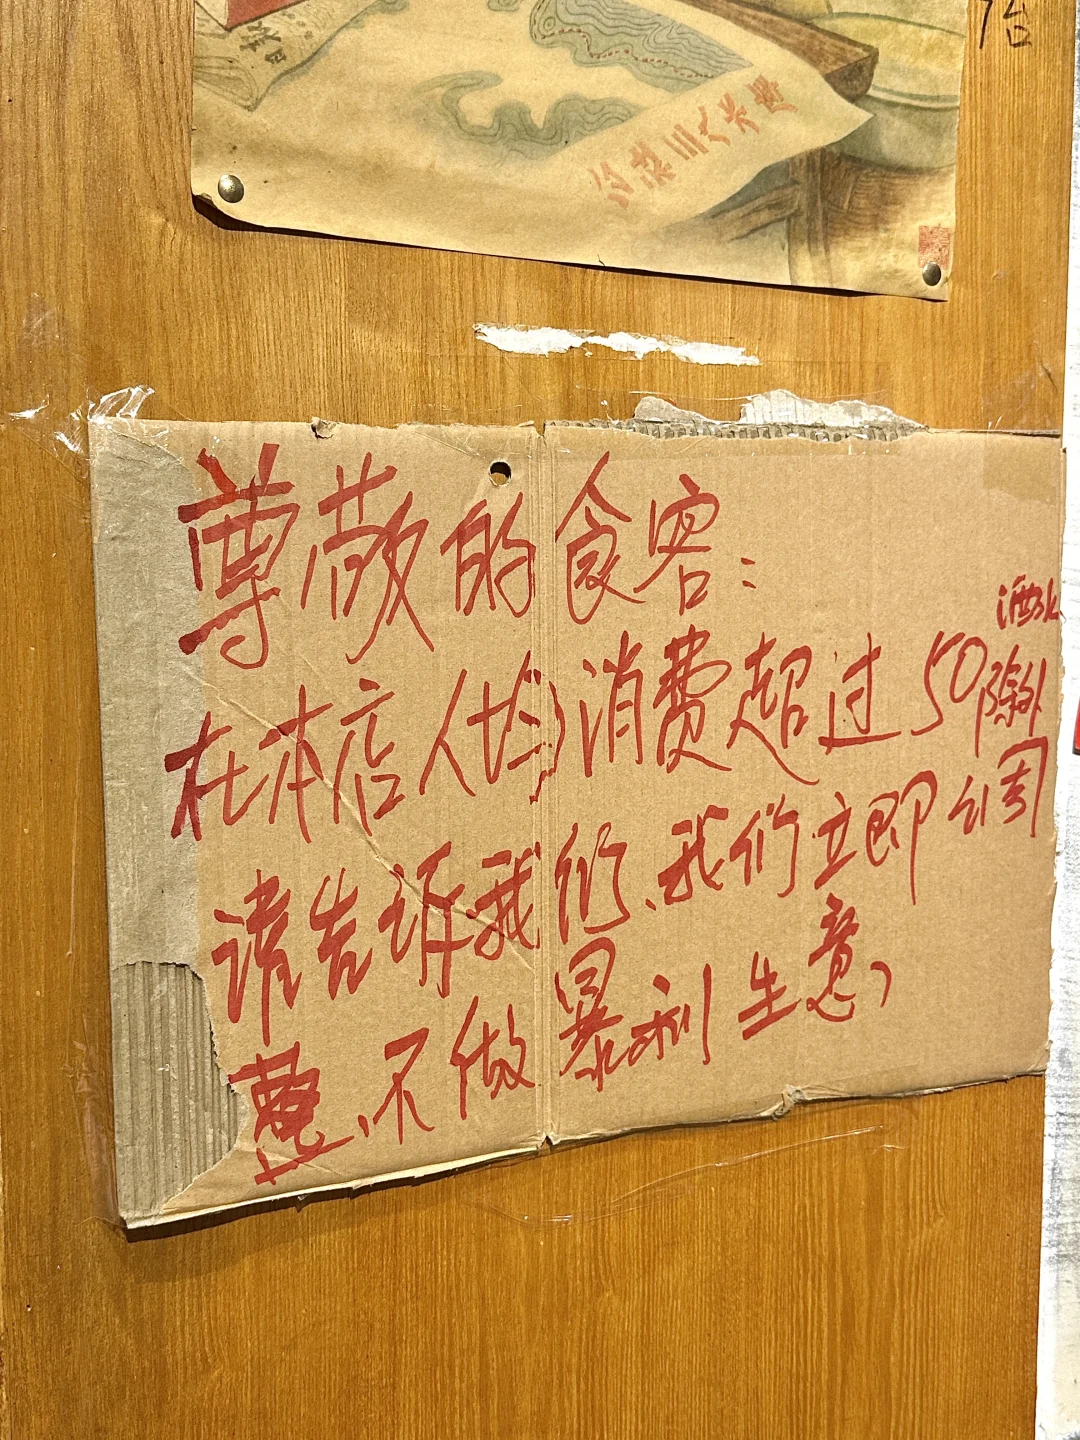 台
尊敬的食客:
酒水
在本店人均消费超过50除外
请告诉我们、我们立即调
整、不做暴利生意,